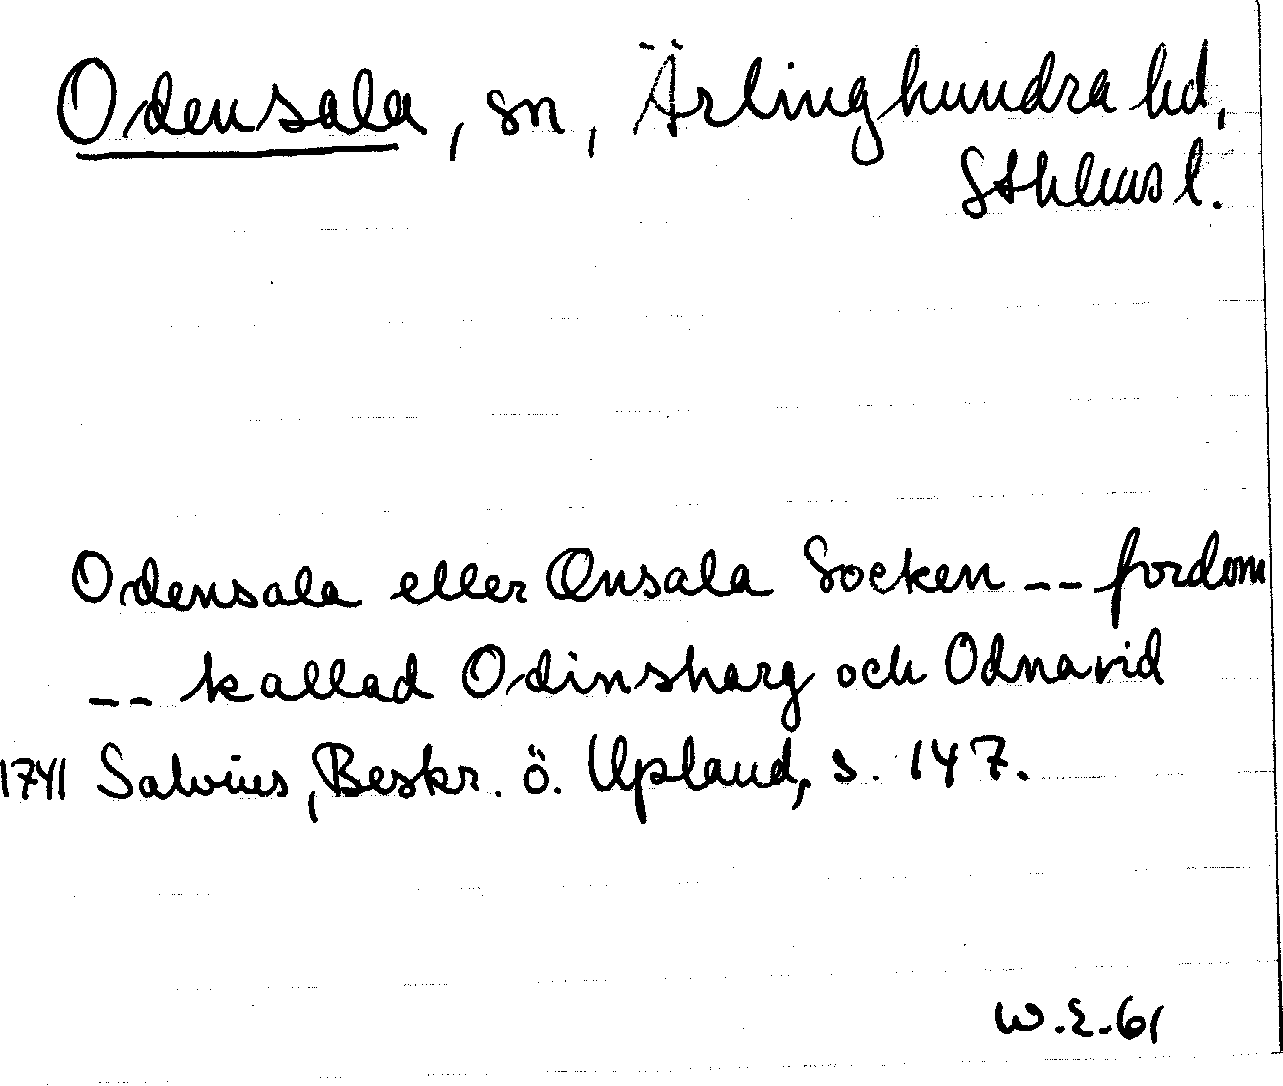 Odensala, sn, Ärlinghundra hd,
Sthlms l.
Odensala eller Onsala Socken -- fordom
-- kallad Odinsharg och Odnavid
1741 Salvius, Beskr. ö. Upland, s. 147.
W.E.61